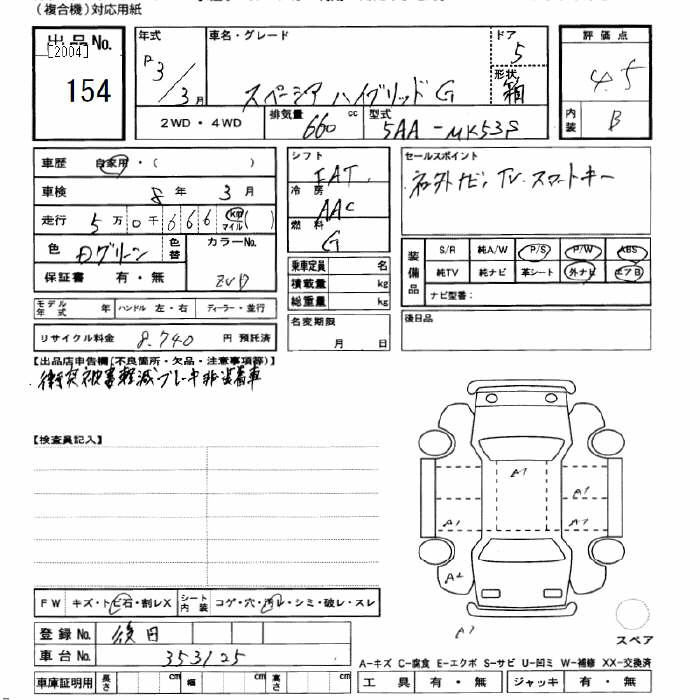 (複合機)対応用紙
出品No.
[2004]
154
年式
R3/3月
車名・グレード
スペーシア ハイブリッド G
ドア
5
形状
箱
評価点
4.5
内装
B
2WD・4WD
排気量 660 cc
型式 5AA-MK53S
車歴 自家用・( )
車検 8年 3月
走行 5万0千666 km マイル( )
色 Dグリーン 色替
カラーNo. ZVD
保証書 有・無
モデル年式 年 ハンドル 左・右 ディーラー・並行
リサイクル料金 8.740 円 預託済
シフト
FAT
冷房
AAC
燃料
G
乗車定員 名
積載量 kg
総重量 kg
名変期限
月 日
セールスポイント
社外ナビ,TV.スマートキー
装備品
S/R 純A/W P/S P/W ABS
純TV 純ナビ 革シート 外ナビ エアB
ナビ型番:
後日品
【出品店申告欄(不良箇所・欠品・注意事項等)】
衝突被害軽減ブレーキ非装着車
【検査員記入】
A1
A1
A1
A1
A2
A2
スペア
FW キズ・トビ石・割レX シート内装 コゲ・穴・汚レ・シミ・破レ・スレ
登録No. 後日
車台No. 353125
車庫証明用 長さ cm 幅 cm 高さ cm
A-キズ C-腐食 E-エクボ S-サビ U-凹ミ W-補修 XX-交換済
工具 有・無 ジャッキ 有・無